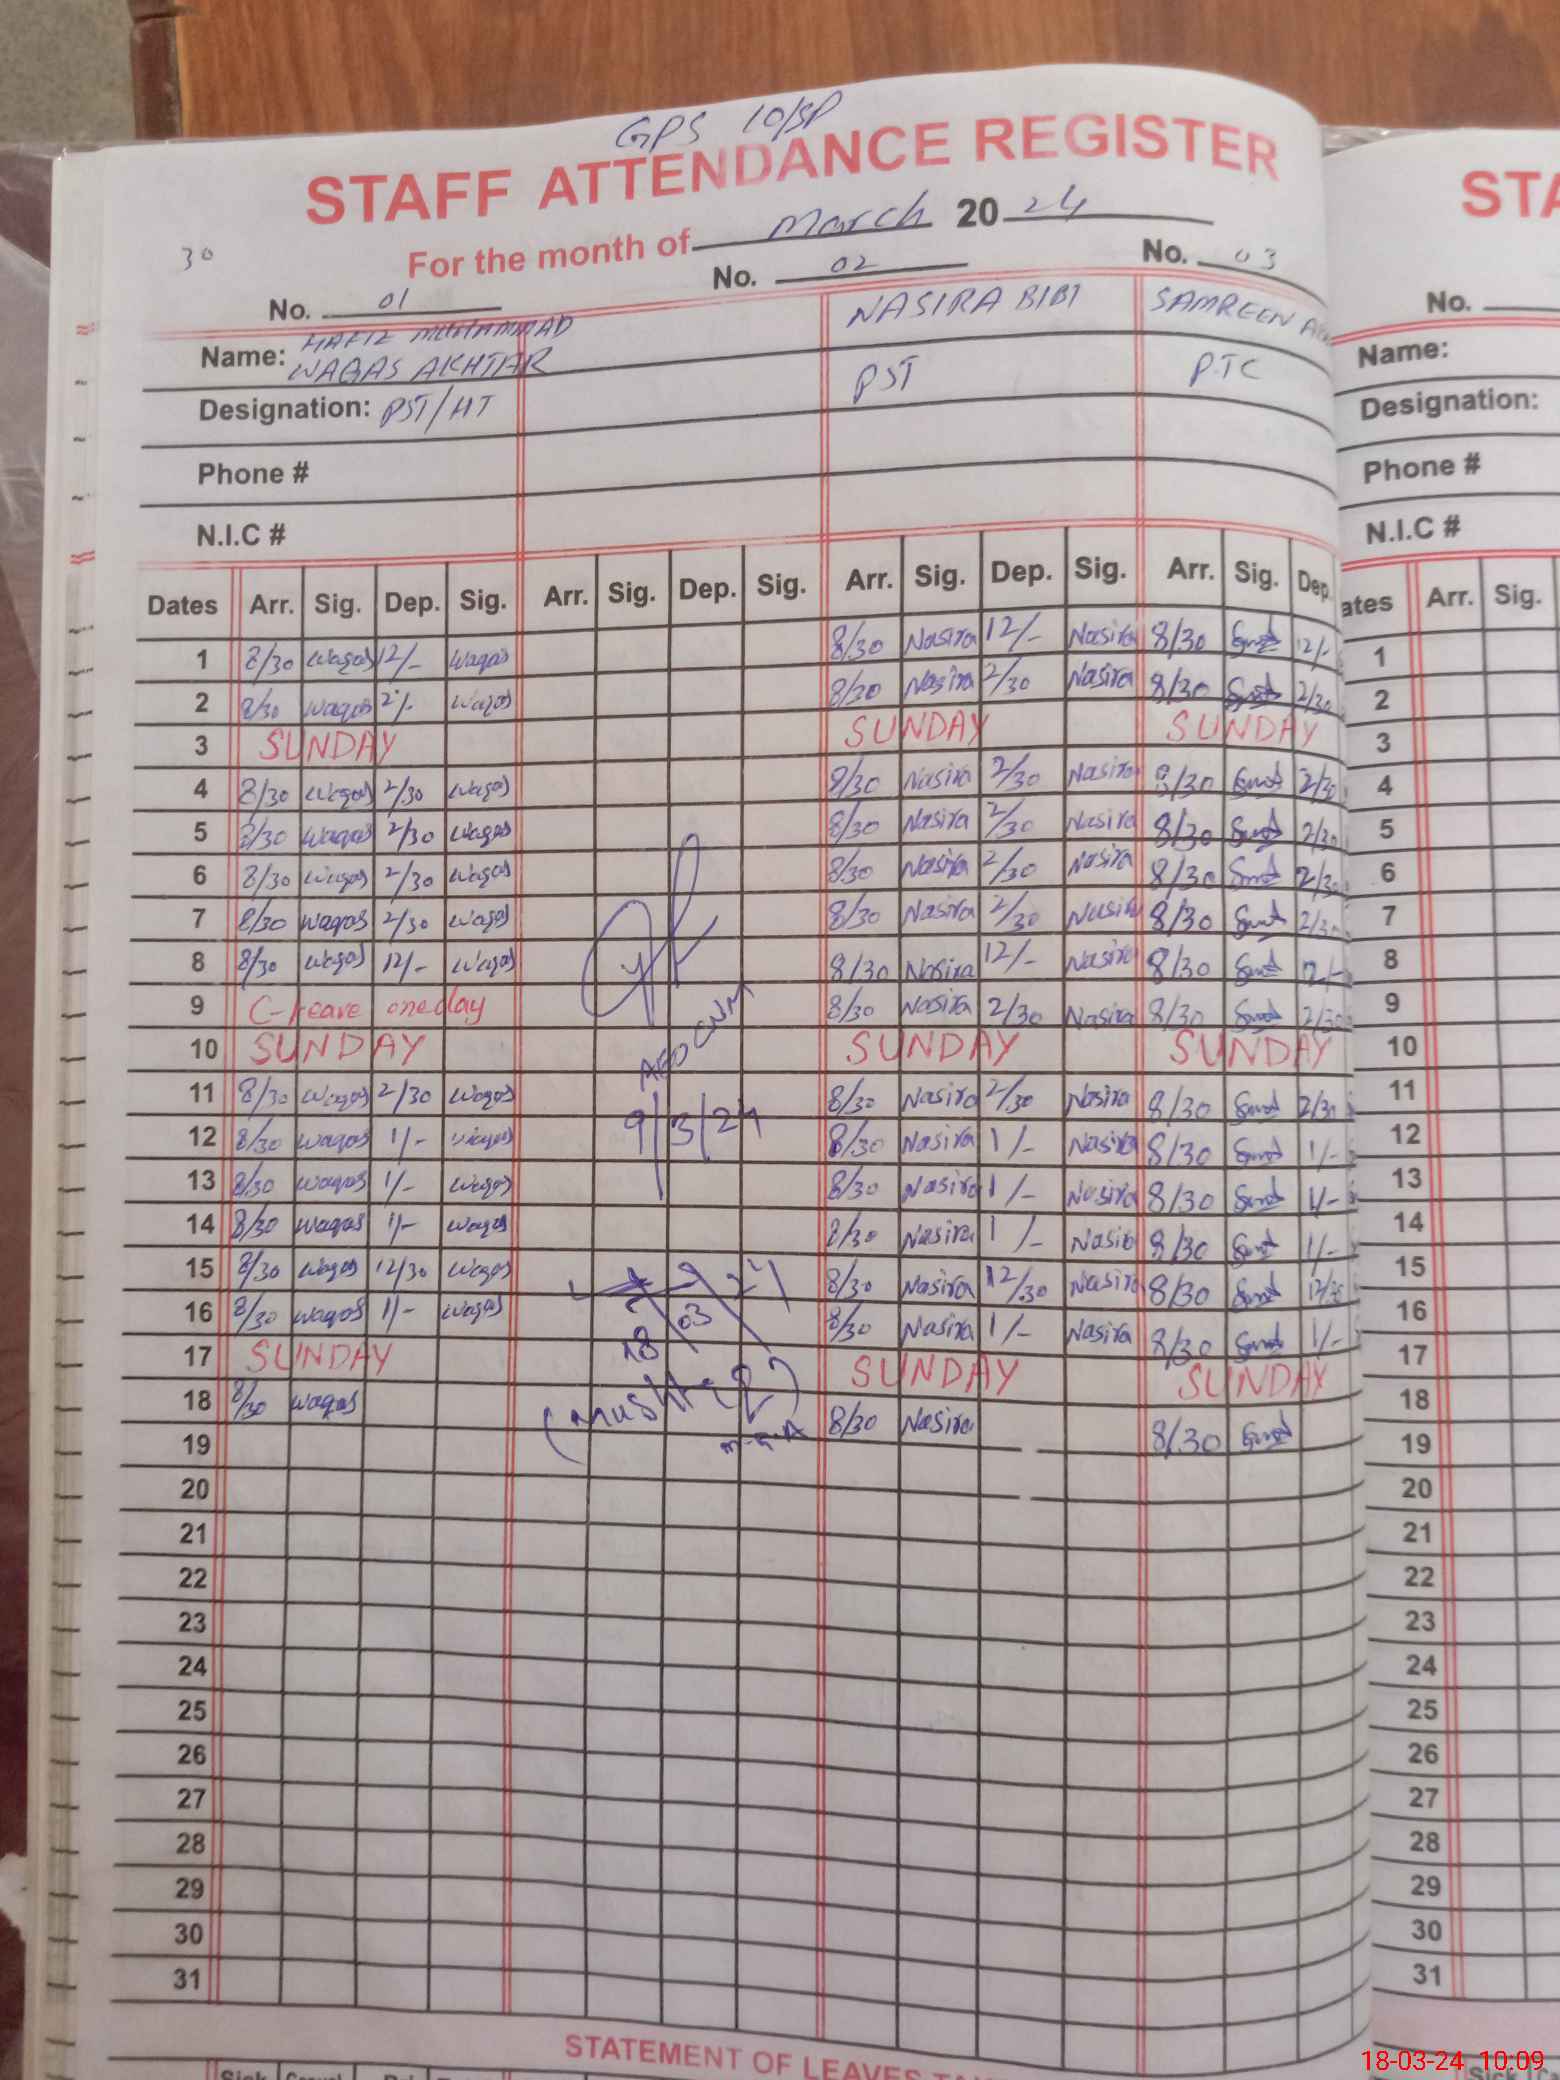 GPS 10/SP
STAFF ATTENDANCE REGISTER
30
For the month of March 2024
No. 01 No. 02 No. 03
Name: HAFIZ MUHAMMAD WAQAS AKHTAR NASIRA BIBI SAMREEN
Designation: PST/HT PST PTC
Phone #
N.I.C #
Dates Arr. Sig. Dep. Sig. Arr. Sig. Dep. Sig. Arr. Sig. Dep. Sig. Arr. Sig. Dep.
1 8/30 waqas 12/- waqas 8/30 Nasira 12/- Nasira 8/30 12/-
2 8/30 waqas 2/- waqas 8/30 Nasira 2/30 Nasira 8/30 2/30
3 SUNDAY SUNDAY SUNDAY
4 8/30 waqas 2/30 waqas 8/30 Nasira 2/30 Nasira 8/30 2/30
5 8/30 waqas 2/30 waqas 8/30 Nasira 2/30 Nasira 8/30 2/30
6 8/30 waqas 2/30 waqas 8/30 Nasira 2/30 Nasira 8/30 2/30
7 8/30 waqas 2/30 waqas 8/30 Nasira 2/30 Nasira 8/30 2/30
8 8/30 waqas 12/- waqas 8/30 Nasira 12/- Nasira 8/30 12/-
9 C-Leave one day 8/30 Nasira 2/30 Nasira 8/30 2/30
AEO
10 SUNDAY SUNDAY SUNDAY
11 8/30 waqas 2/30 waqas 8/30 Nasira 2/30 Nasira 8/30 2/30
12 8/30 waqas 1/- waqas 9/3/24 8/30 Nasira 1/- Nasira 8/30 1/-
13 8/30 waqas 1/- waqas 8/30 Nasira 1/- Nasira 8/30 1/-
14 8/30 waqas 1/- waqas 8/30 Nasira 1/- Nasira 8/30 1/-
15 8/30 waqas 12/30 waqas 8/30 Nasira 12/30 Nasira 8/30 12/30
16 8/30 waqas 1/- waqas 18/03/24 8/30 Nasira 1/- Nasira 8/30 1/-
17 SUNDAY SUNDAY SUNDAY
18 8/30 waqas (Mushtaq) 8/30 Nasira 8/30
19
20
21
22
23
24
25
26
27
28
29
30
31
STATEMENT OF LEAVES
STA
No.
Name:
Designation:
Phone #
N.I.C #
ates Arr. Sig.
1
2
3
4
5
6
7
8
9
10
11
12
13
14
15
16
17
18
19
20
21
22
23
24
25
26
27
28
29
30
31
18-03-24 10:09